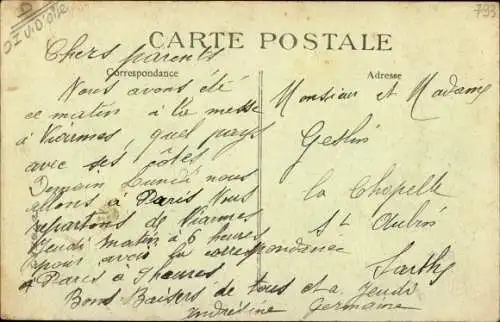 D
S.I.V. D'oise
793
CARTE POSTALE
Correspondance
Adresse
Chers parents
Nous avons été
ce matin à la messe
à Viarmes, quel pays
avec ses côtes
Demain Lundi nous
allons à Paris Nous
repartons de Viarmes
Jeudi matin à 6 heures
pour avoir la correspondance
à Paris à 9 heures
Bons Baisers de tous et a Jeudi
Andréline Germaine
Monsieur et Madame
Geslin
La Chapelle
St Aubin
Sarthe